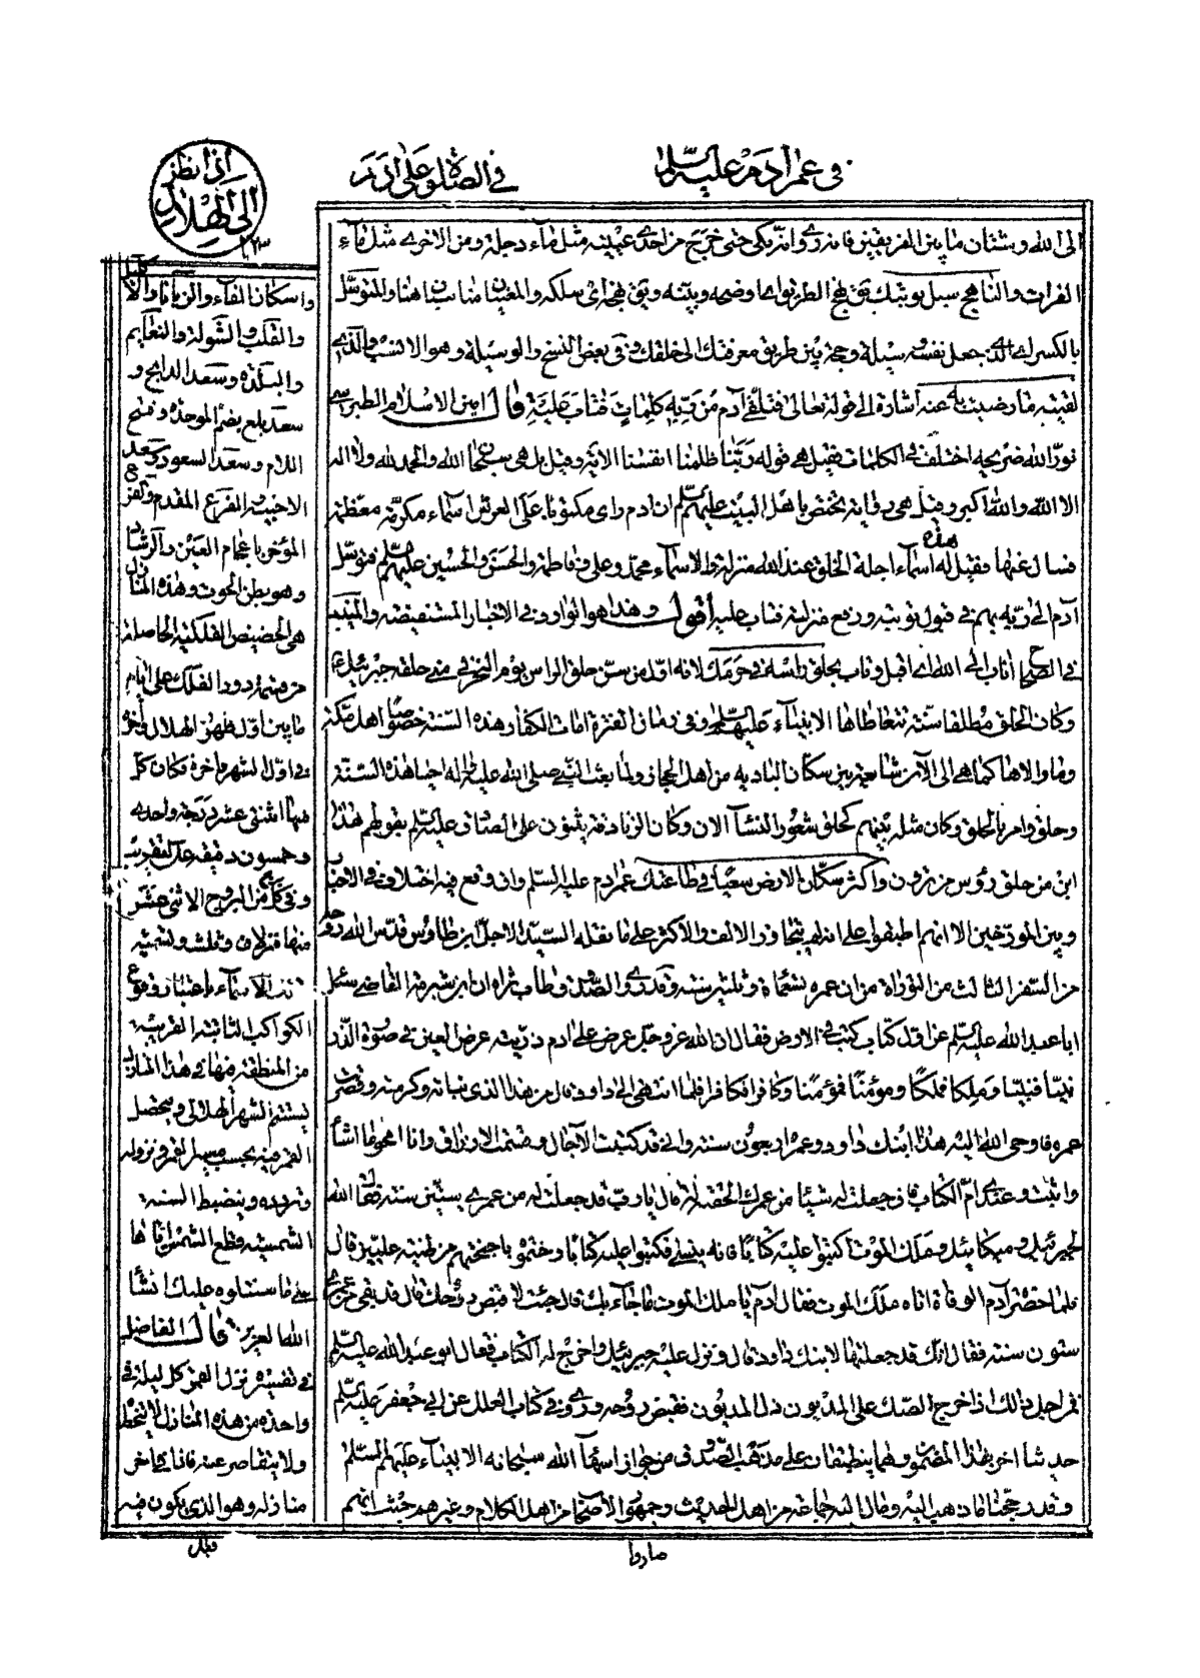 في عمر آدم عليه السلام
في الصلوة على آدم
اذا نظر
الى الهلال
٢٢٣
الى الله وشتان ما بين الفريقين فانه روى وانه بكى حتى خرج من احدى عينيه مثل ماء دجلة ومن الاخرى مثل ماء
الفرات والناهج سبل توبتك يق نهج الطريق اى اوضحه وبيّنه ويق نهجه اى سلكه والمعنيان مناسبان هنا والمتوسل
بالكسر اى الذى جعل نفسه وسيلة وحجة بين طريق معرفتك الى خلقك وفى بعض النسخ والوسيلة وهو الانسب والذى
لقيته ما رضيت به عنه اشارة الى قوله تعالى فتلقى آدم من ربه كلمات فتاب عليه قال امين الاسلام الطبرسى
نور الله ضريحه اختلف فى الكلمات فقيل هى قوله ربنا ظلمنا انفسنا الاية وقيل بل هى سبحان الله والحمد لله ولا اله
الا الله والله اكبر وقيل هى رواية تختص باهل البيت عليهم السلم ان ادم راى مكتوبا على العرش اسماء مكرمة معظمة
فسال عنها فقيل له هذه اسماء اجلة الخلق عند الله منزلة والاسماء محمد وعلى وفاطمة والحسن والحسين عليهم السلم فتوسل
آدم الى ربه بهم فى قبول توبته ورفع منزلته فتاب عليه اقول وهذا هو الوارد فى الاخبار المستفيضة والمنيب
فى الصحاح اناب الى الله اى اقبل وتاب بحلق راسه فى حرمك لانه اول من سن حلق الراس يوم النحر فى منى حلقه جبرئيل
وكان الحلق مطلقا سنة تتعاطاها الانبياء عليهم السلم وفى زمان الفترة امات الكفار هذه السنة خصوصا اهل مكة
وما والاها كما هى الى الآن شايعة بين سكان البادية من اهل الحجاز ولما بعث النبى صلى الله عليه واله احيا هذه السنة
وحلق وامر بالحلق وكان مثله بينهم كحلق شعور النساء الان وكان الزنادقة يثنون على الصادق عليه السلم بقولهم هذا
ابن من حلق رؤس من ترون واكثر سكان الارض سعيا فى طاعتك عمر ادم عليه السلم وان وقع فيه اختلاف فى الاخبار
وبين المورخين الا انهم اطبقوا على انه لم يتجاوز الالف والاكثر على ما نقله السيد الاجل ابن طاوس قدس الله روحه
من السفر الثالث من التوراة من ان عمره تسعمائة وثلثين سنة وقد روى الصدوق طاب ثراه ان ابن شبرمة القاضى سئل
ابا عبد الله عليه السلم عن اول كتاب كتب فى الارض فقال ان الله عز وجل عرض على ادم ذريته عرض العين فى صورة الذر
نبيا فنبيا وملكا فملكا ومؤمنا فمؤمنا وكافرا فكافرا فلما انتهى الى داود قال من هذا الذى نباته وكرمته وقصرت
عمره فاوحى الله اليه هذا ابنك داود وعمره اربعون سنة وانى قد كتبت الآجال وقسمت الارزاق وانا امحو ما اشاء
واثبت وعندى ام الكتاب فان جعلت له شيئا من عمرك الحقته له قال يا رب قد جعلت له من عمرى ستين سنة فقال الله
لجبرئيل وميكائيل وملك الموت اكتبوا عليه كتابا فانه ينسى فكتبوا عليه كتابا وختموه باجنحتهم من طينة عليين قال
فلما احتضر آدم الوفاة اتاه ملك الموت فقال ادم يا ملك الموت ما جاء بك قال جئت لاقبض روحك قال قد بقى من عمرى
ستون سنة فقال انك قد جعلتها لابنك داود قال ونزل عليه جبرئيل واخرج له الكتاب فقال ابو عبد الله عليه السلم
فمن اجل ذلك اذا اخرج الصك على المديون ذل المديون فقبض روحه وروى فى كتاب العلل عن ابى جعفر عليه السلم
حديثا اخر بهذا المضمون وهما ينطبقان على مذهب الصدوق من جواز اسهاء الله سبحانه الانبياء عليهم السلم
وقد رجحنا ما ذهب اليه وقال اليه جماعة من اهل الحديث وجمهور الاصحاب من اهل الكلام وغيرهم حيث انهم
صاروا
واسكان الفاء والزبانا والاكليل
والقلب والشولة والنعايم
والبلدة وسعد الذابح و
سعد بلع بضم الموحدة وفتح
اللام وسعد السعود وسعد
الاخبية والفرع المقدم والفرع
المؤخر باعجام الغين والرشاء
وهو بطن الحوت وهذه المنازل
هى الحضيض الفلكية الحاصلة
من قسمة دور الفلك على ايام
ما بين اول ظهور الهلال واخره
فى اول الشهر واخره فكان كل
منها اثنتى عشر درجة واحدى
وخمسون دقيقة على التقريب
وفى كل من البروج الاثنى عشر
منها منزلان وثلث وتسمية
هذه الاسماء باعتبار وقوع
الكواكب الثابتة القريبة
من المنطقة منها فى هذا المنازل
يستتم الشهر الهلالى ويحصل
القمر فيه بحسب مسير القمر ونزوله
وتردده وينضبط السنة
الشمسية وقطع الشمس اياها
على ما سنتلوه عليك انشاء
الله العزيز قال الفاضل
فى تفسيره نزل القمر كل ليلة فى
واحدة من هذه المنازل لا يتخطى
ولا يتقاصر عنه فاذا كان فى اخر
منازله وهو الذى يكون فيه
قبل